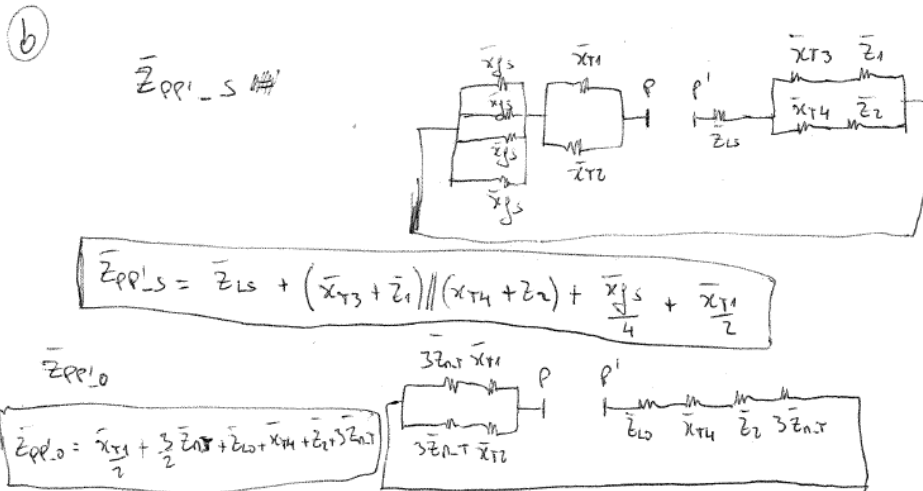 b
Z̄PP'_S
x̄gs x̄T1 P P' x̄T3 Z̄1
x̄gs
x̄gs z̄LS x̄T4 z̄2
x̄gs x̄T2
Z̄PP'_S = Z̄LS + (x̄T3 + Z̄1) || (x̄T4 + Z2) + x̄gs/4 + x̄T1/2
Z̄PP'_0
3Z̄n_T x̄T1 P P'
3Z̄n_T x̄T2 z̄L0 x̄T4 z̄2 3Z̄n_T
Z̄PP'_0 = x̄T1/2 + 3/2 Z̄n_T + Z̄L0 + x̄T4 + Z̄2 + 3Z̄n_T